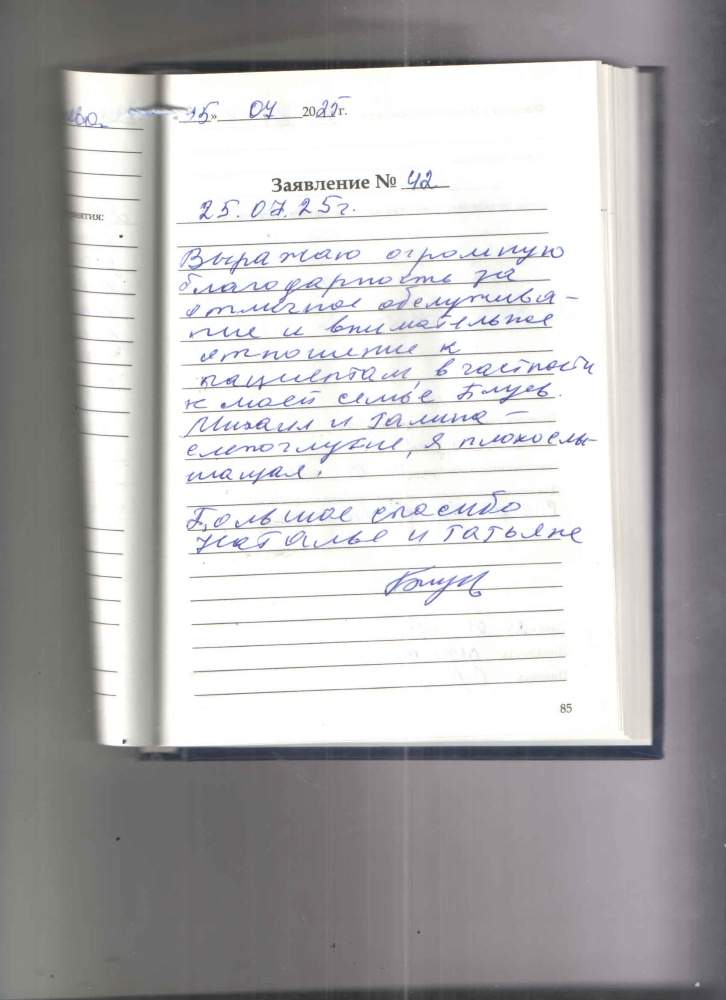 ню.
«15» 07 2025г.
Заявление № 42
25.07.25г.
иятия:
Выражаю огромную
благодарность за
отличное обслужива-
ние и внимательное
отношение к
пациентам, в частности
к моей семье Блуев.
Михаил и Галина –
слепоглухие, я плохослы-
шащая.
Большое спасибо
Наталье и Татьяне
85